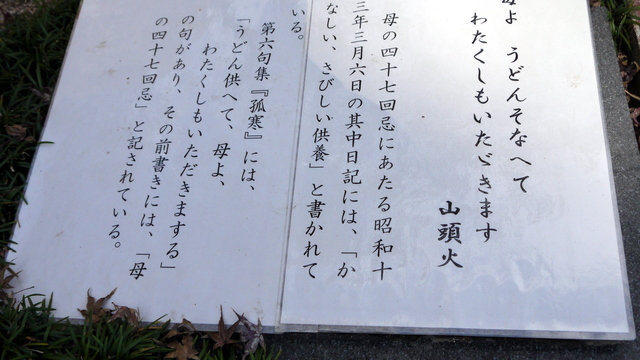 よ うどんそなへて
わたくしもいたゞきます
山頭火
母の四十七回忌にあたる昭和十
三年三月六日の其中日記には、「か
なしい、さびしい供養」と書かれて
いる。
第六句集『孤寒』には、
「うどん供へて、母よ、
わたくしもいただきまする」
の句があり、その前書きには、「母
の四十七回忌」と記されている。